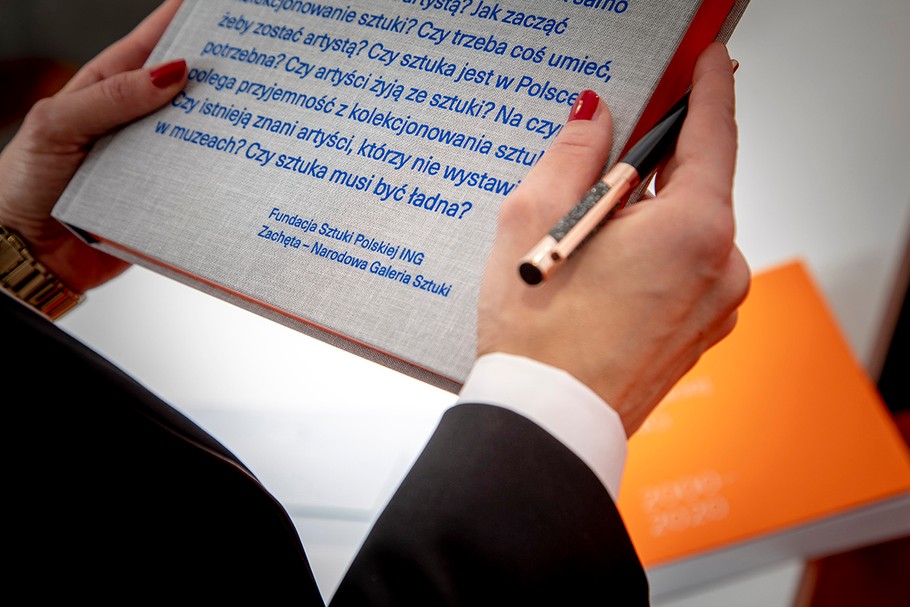 artystą? Jak zacząć
kolekcjonowanie sztuki? Czy trzeba coś umieć,
żeby zostać artystą? Czy sztuka jest w Polsce
potrzebna? Czy artyści żyją ze sztuki? Na czym
polega przyjemność z kolekcjonowania sztuki?
Czy istnieją znani artyści, którzy nie wystawi
w muzeach? Czy sztuka musi być ładna?
Fundacja Sztuki Polskiej ING
Zachęta – Narodowa Galeria Sztuki
2000–
2020